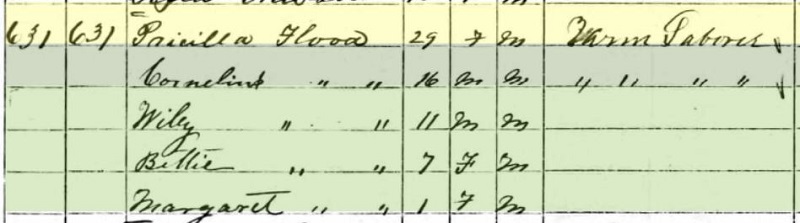 631 631 Pricilla Flood 29 F M Farm Laborer
Cornelius " " 16 M M " " " "
Wiley " " 11 M M
Bettie " " 7 F M
Margaret " " 1 F M